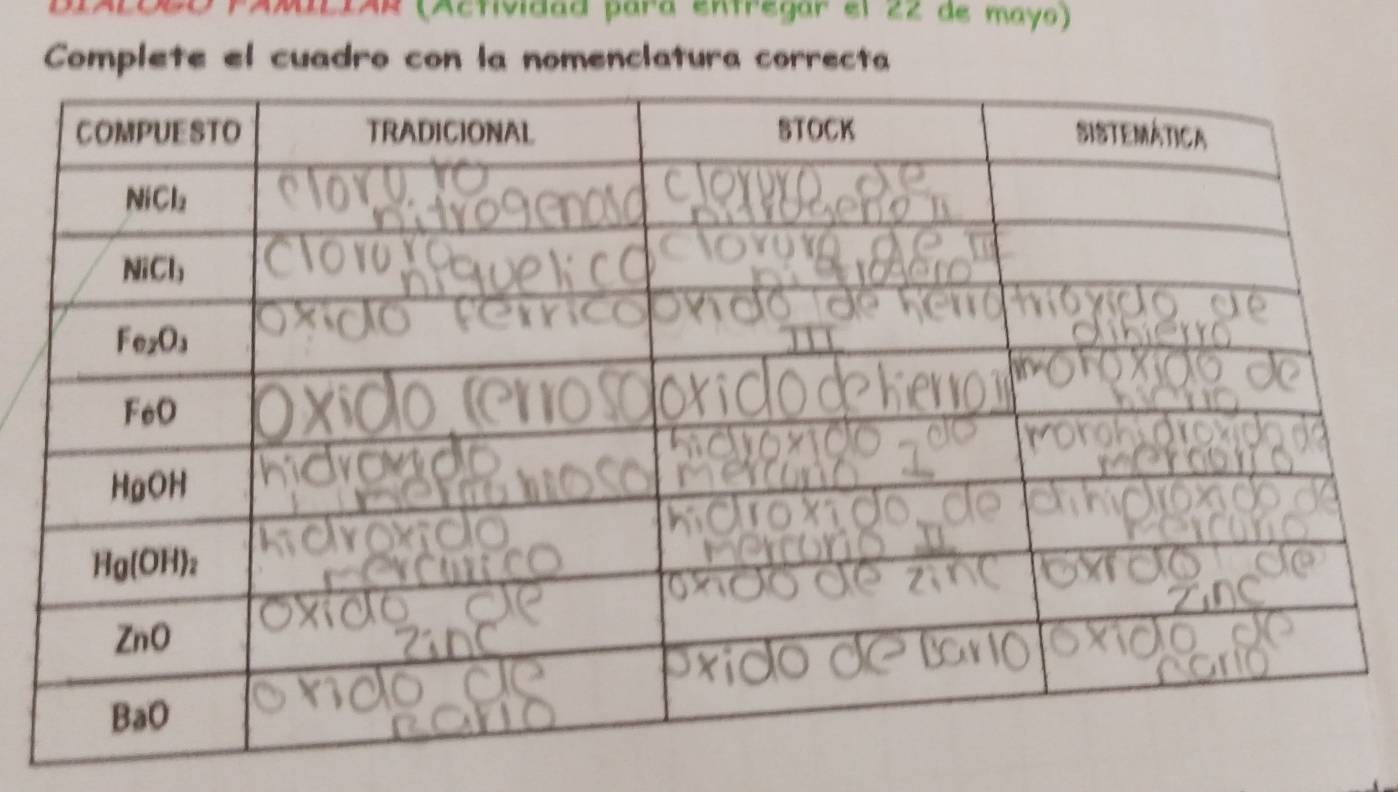 DIALOGO FAMILIAR (Actividad para entregar el 22 de mayo)
Complete el cuadro con la nomenclatura correcta
COMPUESTO TRADICIONAL STOCK SISTEMÁTICA
NiCl₂
cloruro
nitrogenoso
cloruro de
II
NiCl₃
cloruro
niquelico
cloruro de III
Fe₂O₃
oxido ferrico
oxido de hierro
III
trioxido de
dihierro
FeO
oxido ferroso
oxido de hierro II
monoxido de
hierro
HgOH
hidroxido
mercurioso
hidroxido de
mercurio I
monohidroxido de
mercurio
Hg(OH)₂
hidroxido
mercurico
hidroxido de
mercurio II
dihidroxido de
mercurio
ZnO
oxido de
zinc
oxido de zinc
oxido de
zinc
BaO
oxido de
bario
oxido de bario
oxido de
bario